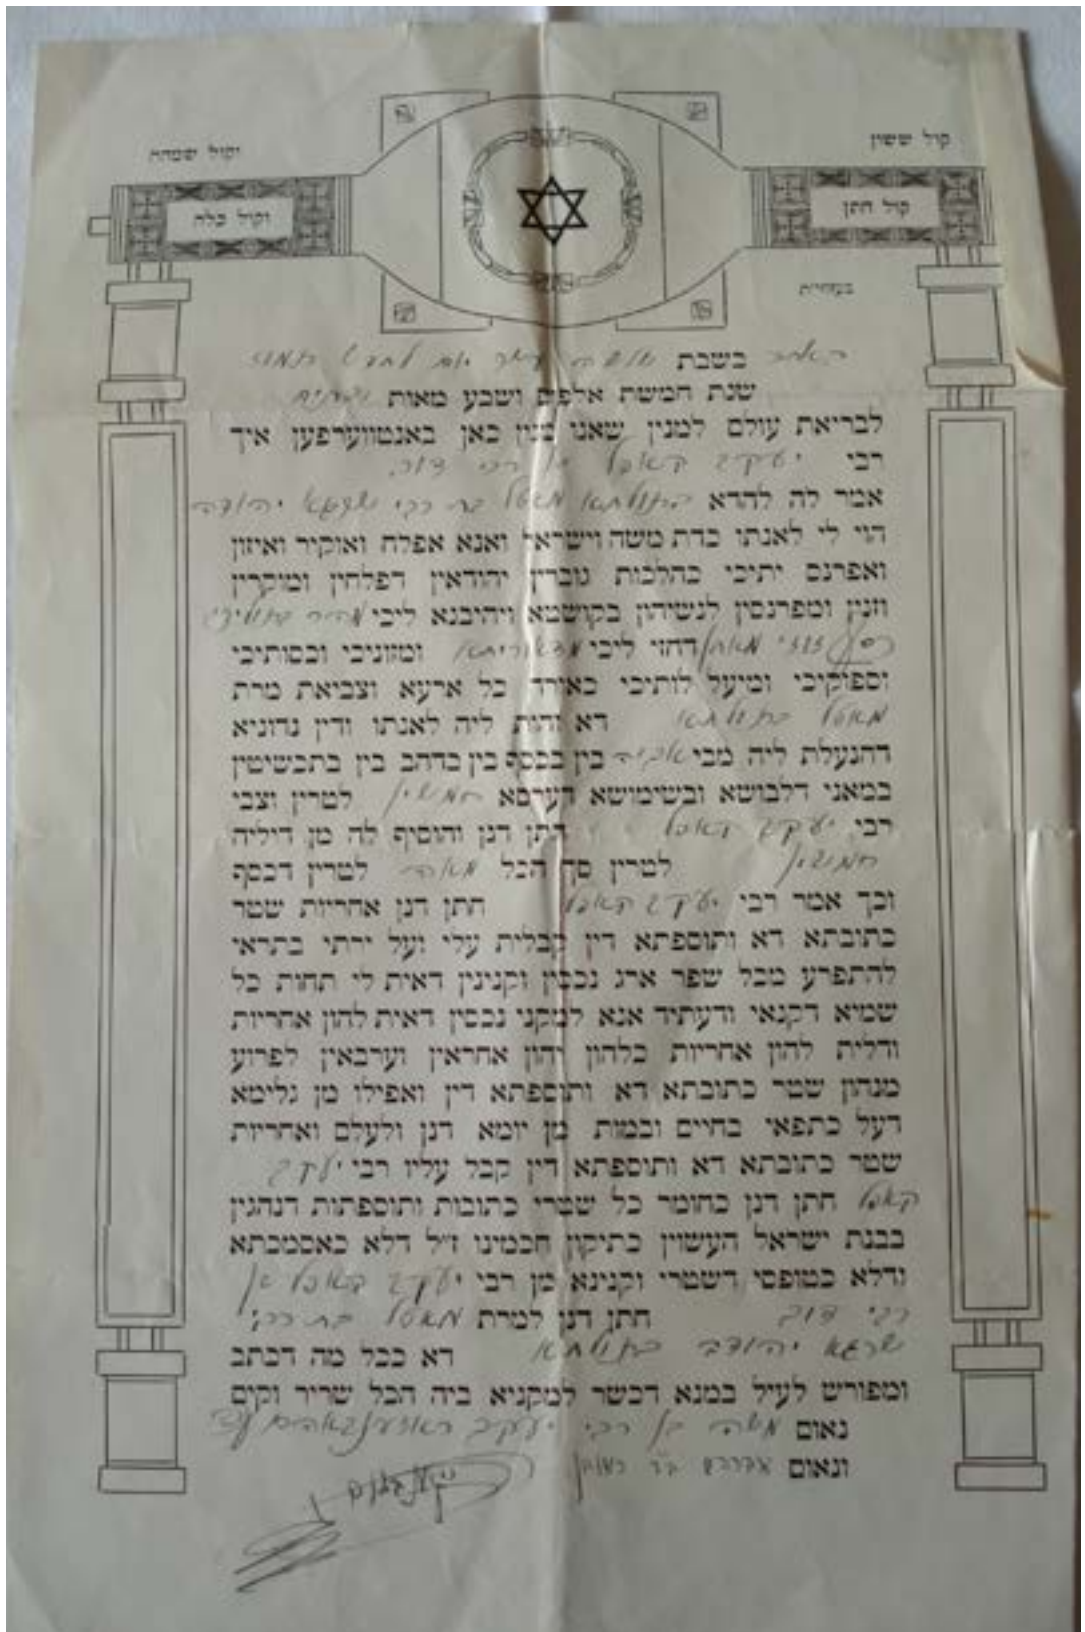 קול ששון
וקול שמחה
קול חתן
וקול כלה
בעזהי״ת
באחד בשבת שלשה עשר יום לחדש תמוז
שנת חמשת אלפים ושבע מאות
לבריאת עולם למנין שאנו מנין כאן באנטווערפען איך
רבי יעקב קאפל בן רבי דוב
אמר לה להדא בתולתא מאטל בת רבי שרגא יהודה
הוי לי לאנתו כדת משה וישראל ואנא אפלח ואוקיר ואיזון
ואפרנס יתיכי כהלכות גוברין יהודאין דפלחין ומוקרין
וזנין ומפרנסין לנשיהון בקושטא ויהיבנא ליכי מהר בתוליכי
כסף זוזי מאתן דחזי ליכי מדאוריתא ומזוניכי וכסותיכי
וספוקיכי ומיעל לותיכי כאורח כל ארעא וצביאת מרת
מאטל בתולתא דא והות ליה לאנתו ודין נדוניא
דהנעלת ליה מבי אביה בין בכסף בין בדהב בין בתכשיטין
במאני דלבושא ובשימושא דערסא חמשין לטרין וצבי
רבי יעקב קאפל חתן דנן והוסיף לה מן דיליה
חמשין לטרין סך הכל מאה לטרין דכסף
וכך אמר רבי יעקב קאפל חתן דנן אחריות שטר
כתובתא דא ותוספתא דין קבלית עלי ועל ירתי בתראי
להתפרע מכל שפר ארג נכסין וקנינין דאית לי תחות כל
שמיא דקנאי ודעתיד אנא למקני נכסין דאית להון אחריות
ודלית להון אחריות כלהון יהון אחראין וערבאין לפרוע
מנהון שטר כתובתא דא ותוספתא דין ואפילו מן גלימא
דעל כתפאי בחיים ובמות מן יומא דנן ולעלם ואחריות
שטר כתובתא דא ותוספתא דין קבל עליו רבי יעקב
קאפל חתן דנן כחומר כל שטרי כתובות ותוספתות דנהגין
בבנת ישראל העשוין כתיקון חכמינו ז״ל דלא כאסמכתא
ודלא כטופסי דשטרי וקנינא מן רבי יעקב קאפל בן
רבי דוב חתן דנן למרת מאטל בת רבי
שרגא יהודה בתולתא דא ככל מה דכתב
ומפורש לעיל במנא דכשר למקניא ביה הכל שריר וקים
נאום משה בן רבי יעקב עד
ונאום